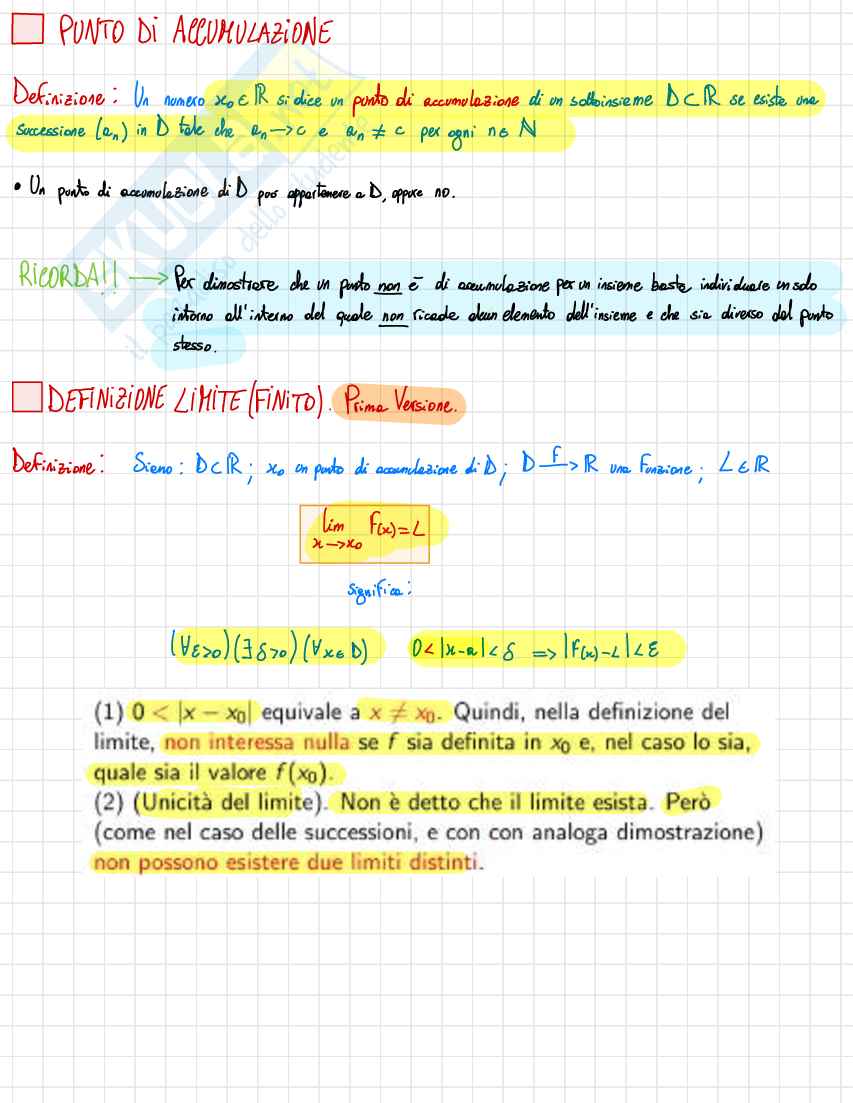 PUNTO DI ACCUMULAZIONE
Definizione: Un numero x₀ ∈ ℝ si dice un punto di accumulazione di un sottoinsieme D ⊂ ℝ se esiste una
successione (aₙ) in D tale che aₙ → c e aₙ ≠ c per ogni n ∈ ℕ
• Un punto di accumulazione di D può appartenere a D, oppure no.
RICORDA!! → Per dimostrare che un punto non è di accumulazione per un insieme basta individuare un solo
intorno all'interno del quale non ricade alcun elemento dell'insieme e che sia diverso dal punto
stesso.
DEFINIZIONE LIMITE (FINITO). Prima Versione.
Definizione: Siano: D ⊂ ℝ; x₀ un punto di accumulazione di D; D —f→ ℝ una funzione; L ∈ ℝ
lim F(x) = L
x → x₀
significa:
(∀ε>0)(∃δ>0)(∀x∈D) 0 < |x-a| < δ ⇒ |F(x)-L| < ε
(1) 0 < |x − x₀| equivale a x ≠ x₀. Quindi, nella definizione del
limite, non interessa nulla se f sia definita in x₀ e, nel caso lo sia,
quale sia il valore f(x₀).
(2) (Unicità del limite). Non è detto che il limite esista. Però
(come nel caso delle successioni, e con con analoga dimostrazione)
non possono esistere due limiti distinti.